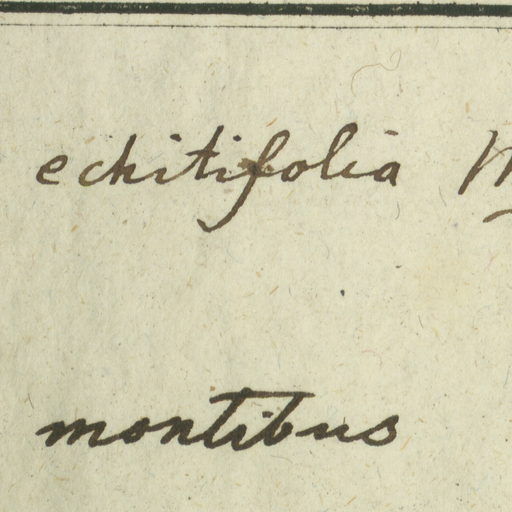 echitifolia
montibus